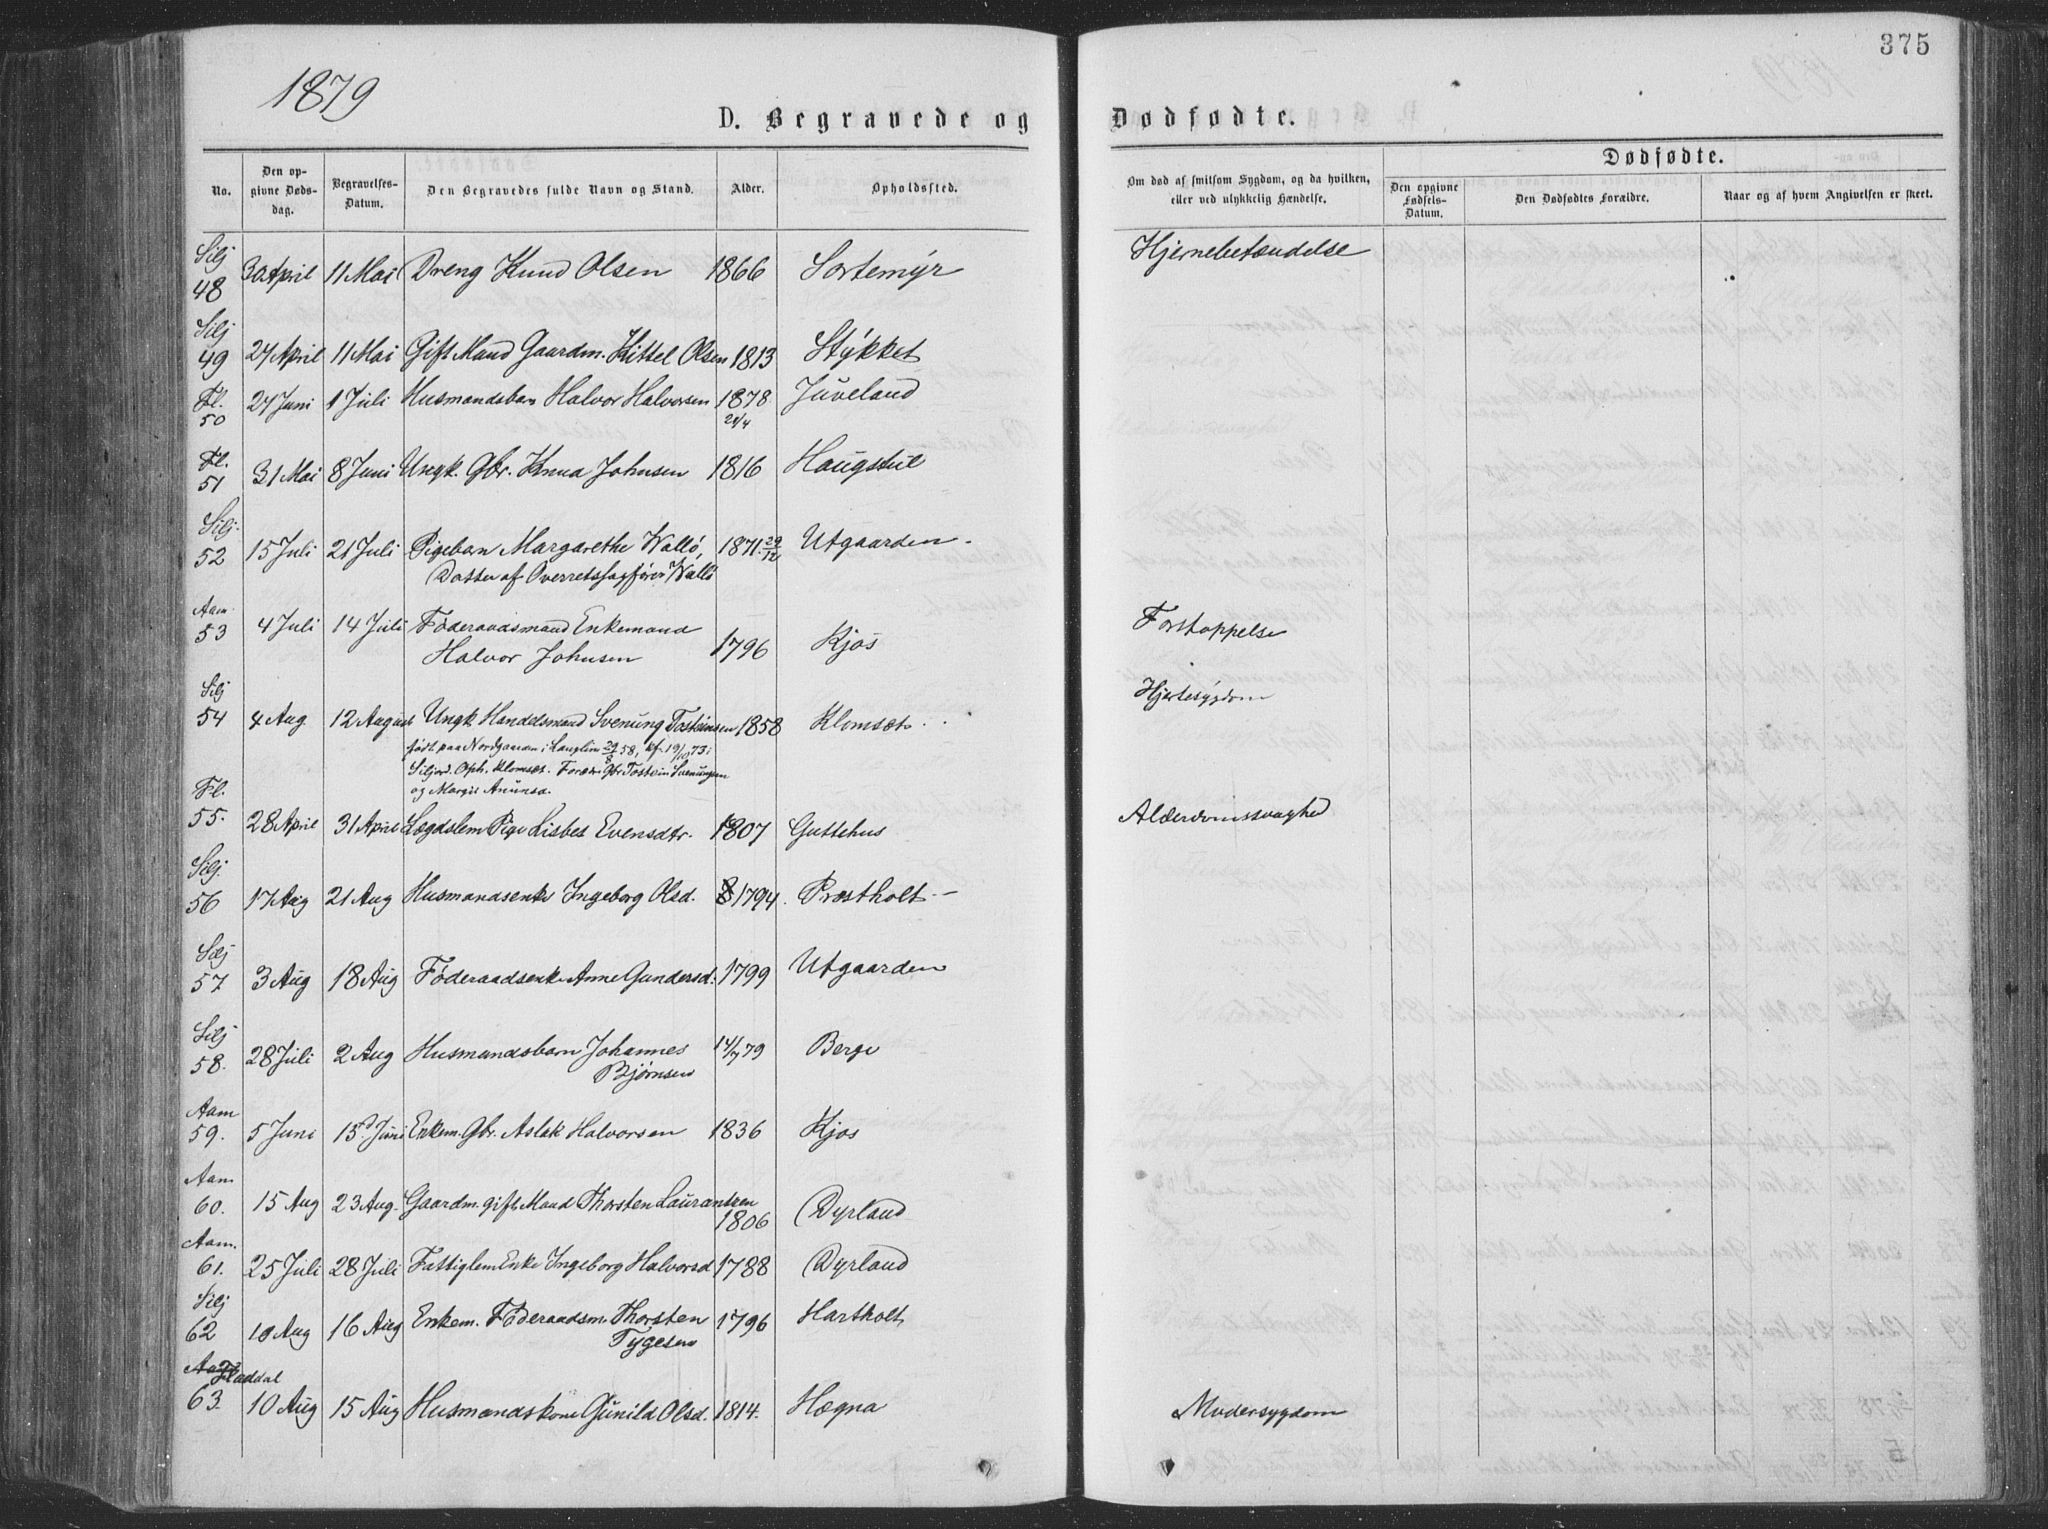 375
1879
D. Begravede og Dødfødte.
Dødfødte.
No.
Den op-
givne Døds-
dag.
Begravelses-
Datum.
Den Begravedes fulde Navn og Stand.
Alder.
Opholdssted.
Om død af smitsom Sygdom, og da hvilken,
eller ved ulykkelig Hændelse.
Den opgivne
Fødsels-
Datum.
Den Dødfødtes Forældre.
Naar og af hvem Angivelsen er skeet.
Silj
48 30 April 11 Mai Dreng Knud Olsen 1866 Sortemyr Hjernebetændelse
Silj
49 27 April 11 Mai Gift Mand Gaardm. Kittel Olsen 1813 Stykket
Fl.
50 27 Juni 1 Juli Husmandsbarn Halvor Halvorsen 1878 Juveland
21/4
Fl.
51 31 Mai 8 Juni Ungk. Gbr. Knud Johnsen 1816 Haugstul
Silj.
52 15 Juli 21 Juli Pigebarn Margarethe Wallø, 1871. 29/12 Utgaarden
Datter af Overretssagfører Wallø
Aam
53 4 Juli 14 Juli Føderaadsmand Enkemand
Halvor Johnsen 1796 Kjos Forstoppelse
Silj
54 4 Aug 12 August Ungk Handelsmand Svenung Tosteinsen 1858 Klomset Hjertesygdom
født paa Nordgaarden i Langlim 29/8 58, kf. 19/10 73 i
Siljord. Oph. Klomset. Foræ: Gbr Tostein Svenungsen
og Margit
Fl.
55. 28 April 31 April Lægdslem Pige Lisbet Evensdtr. 1807 Guttehus Alderdomssvaghed
Silj.
56 17 Aug 21 Aug Husmandsenke Ingeborg Olsd. 1794. Præstholt
Silj
57 3 Aug 18 Aug Føderaadsenke Anne Gundersd. 1799 Utgaarden
Silj
58. 28 Juli 2 Aug Husmandsbarn Johannes 14/7 79 Berge
Bjørnsen
Aam
59. 5 Juni 15d Juni Enkem. Gbr. Aslak Halvorsen 1836 Kjos
Aam
60. 15 Aug 23 Aug. Gaardm. gift Mand Thorsten Laurantzen
1806 Dyrland
Aam.
61. 25 Juli 28 Juli Fattiglem Enke Ingeborg Halvorsd 1788 Dyrland
Silj
62 10 Aug 16 Aug Enkem. Føderaadsm Thorsten 1796 Hartholt
Tygesen
Fladdal
63. 10 Aug 15 Aug Husmandskone Gunild Olsd. 1814. Hægna Modersygdom